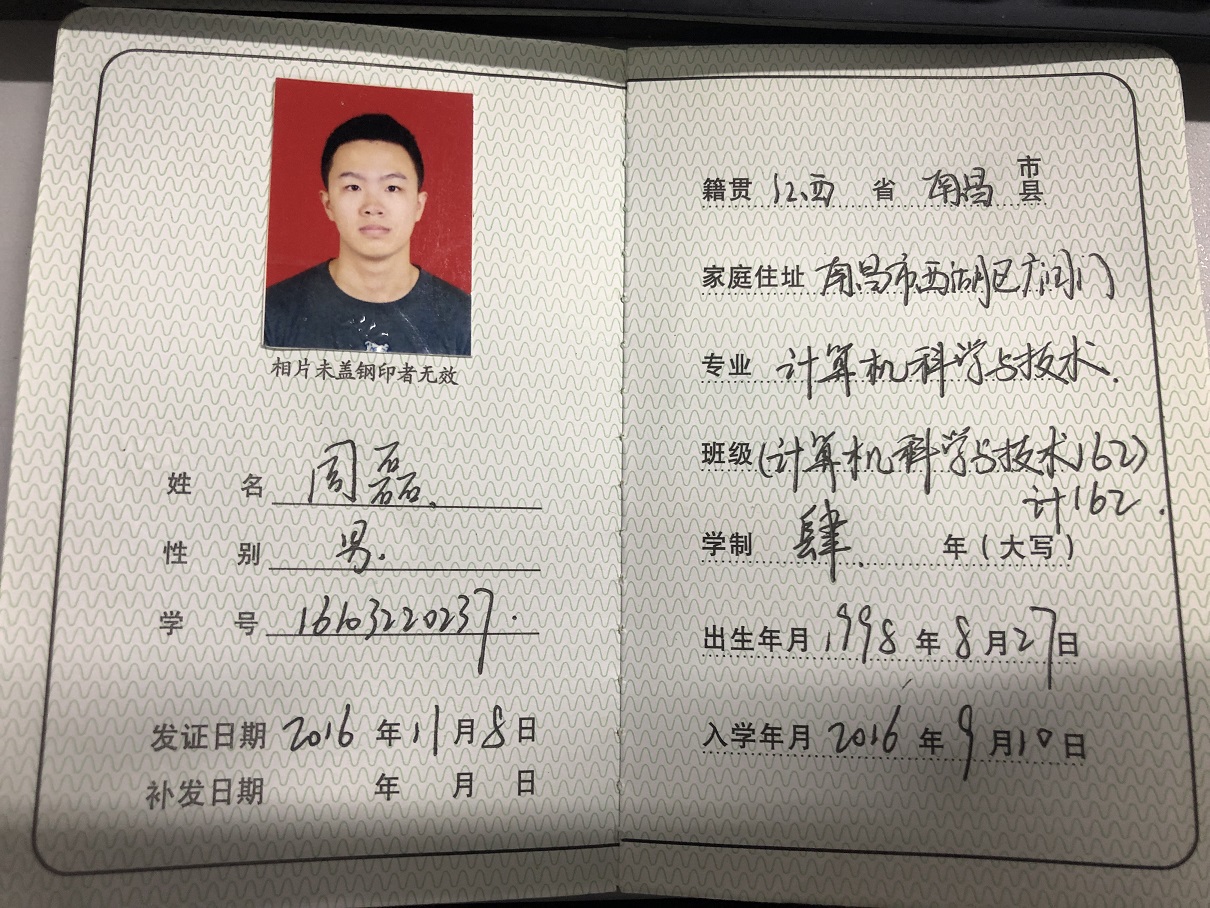 相片未盖钢印者无效
姓 名 周磊.
性 别 男.
学 号 1610322023７.
发证日期 2016 年 11 月 8 日
补发日期 年 月 日
籍贯 江西 省 南昌 市县
家庭住址 南昌市西湖区广润门
专业 计算机科学与技术.
班级 (计算机科学与技术162)
计162.
学制 肆. 年(大写)
出生年月 1998 年 8 月 27 日
入学年月 2016 年 9 月 10 日